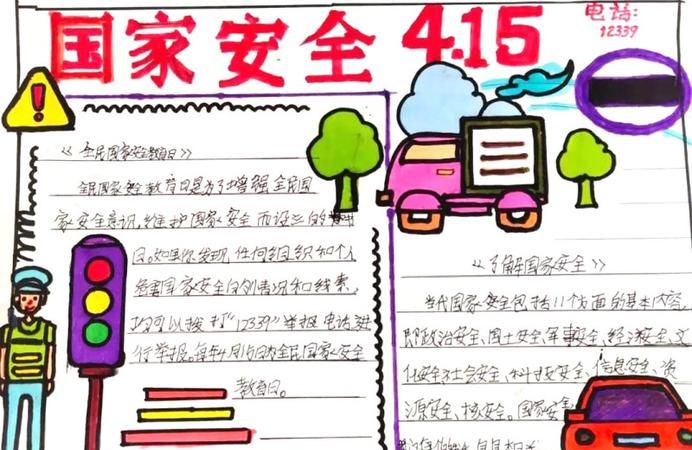 国家安全 4.15
电话:
12339
《全民国家安全教育日》
全民国家安全教育日是为了增强全民国
家安全意识,维护国家安全而设立的
日。如果你发现任何组织和个人
危害国家安全的情况和线索,
均可以拨打“12339”举报电话,进
行举报。每年4月15日为全民国家安全
教育日。
《了解国家安全》
当代国家安全包括11个方面的基本内容,
即政治安全、国土安全、军事安全、经济安全、文
化安全、社会安全、科技安全、信息安全、资
源安全、核安全。国家安全